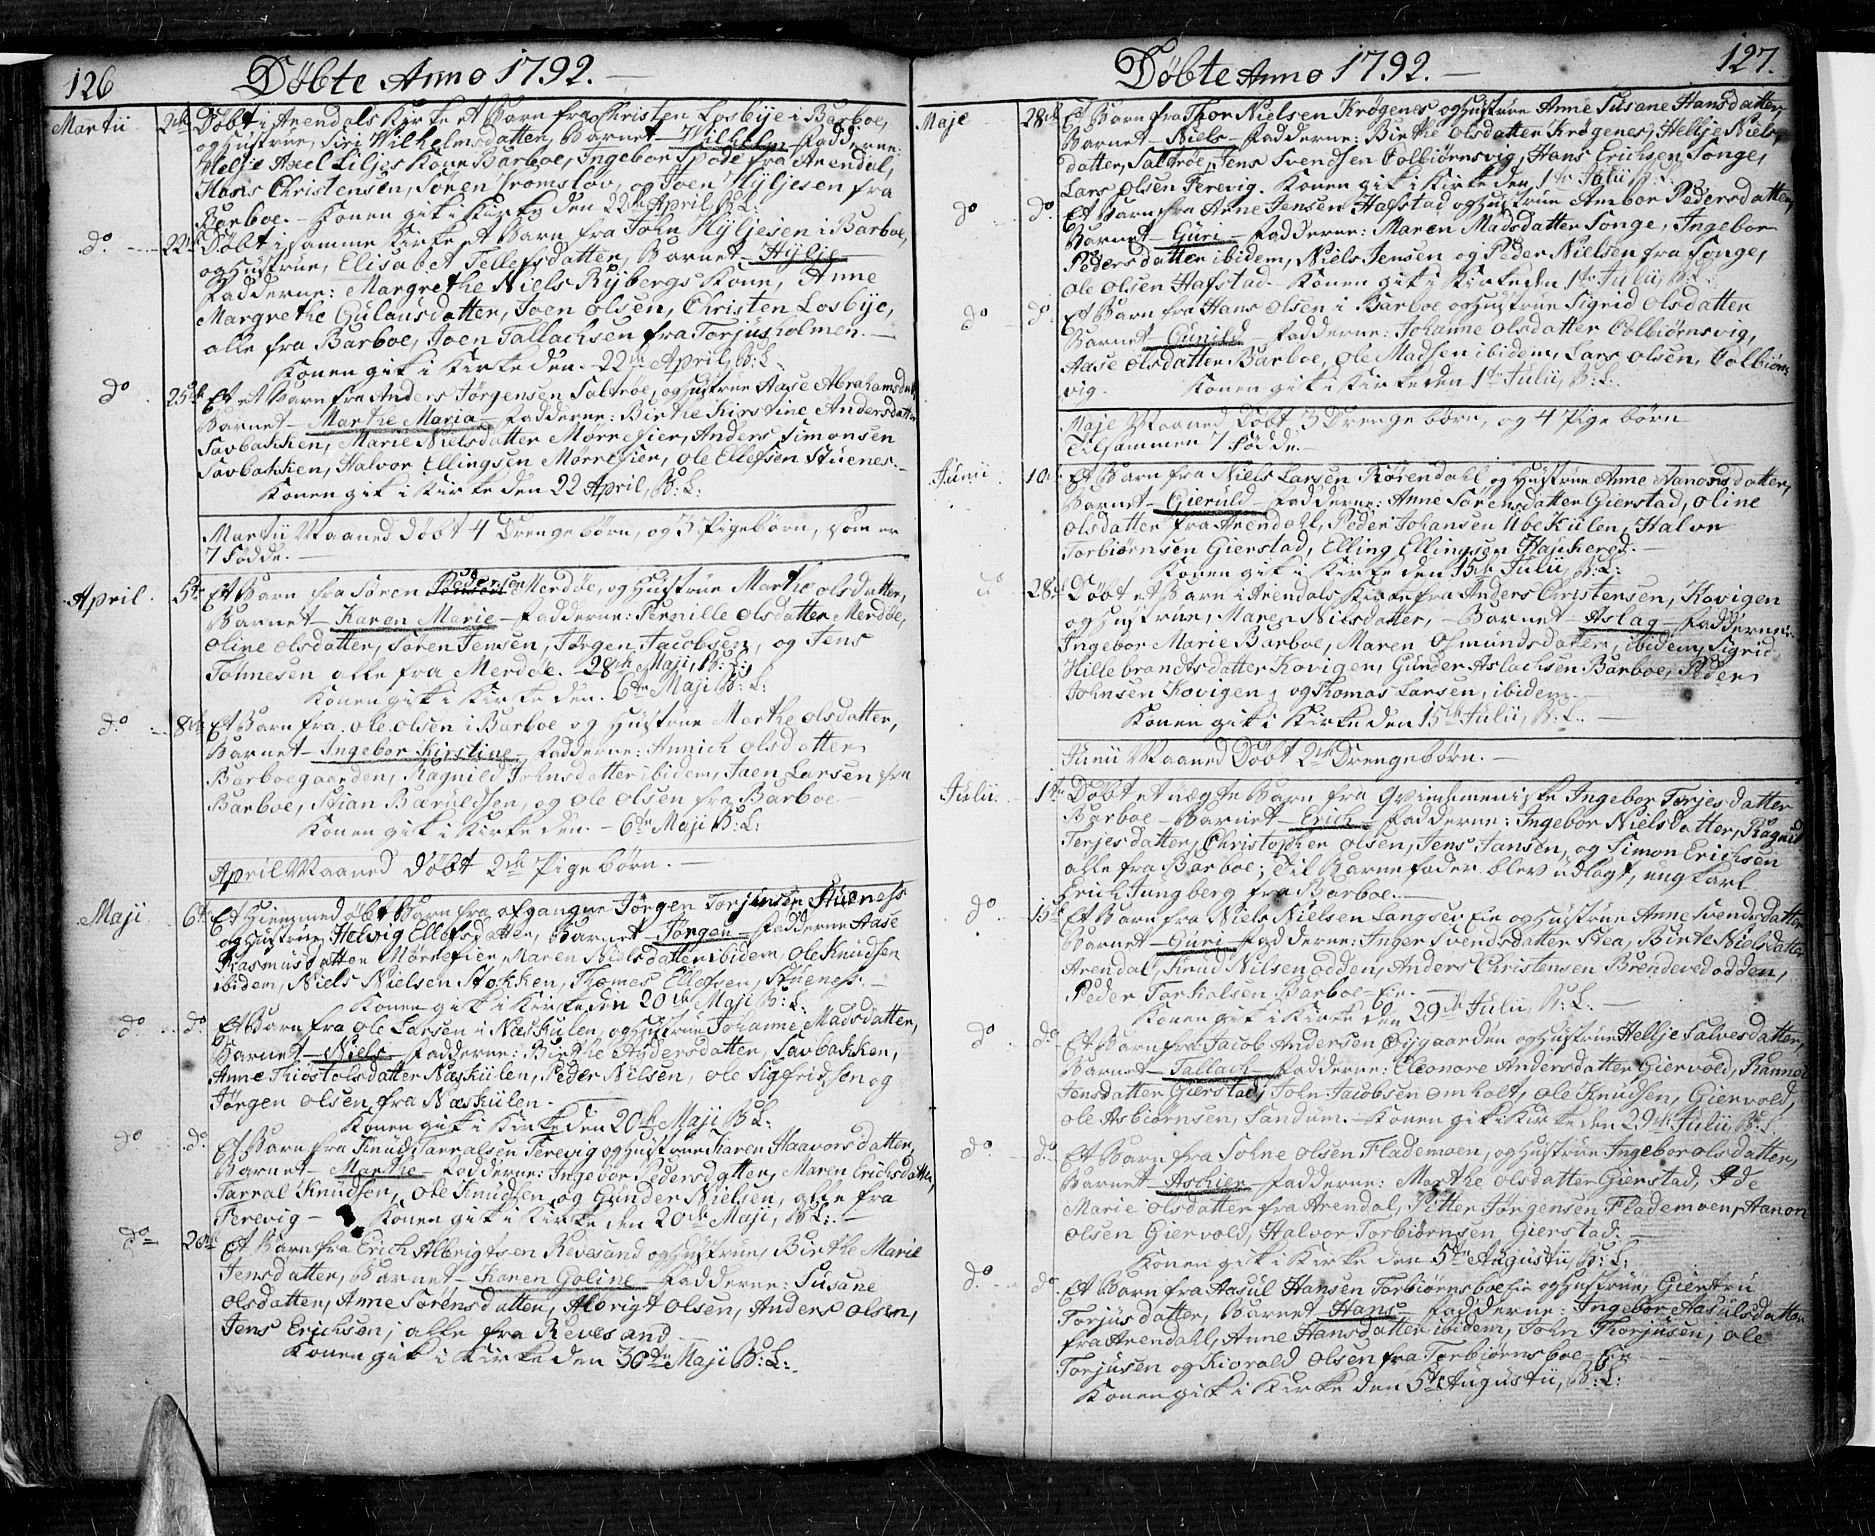 126 Döbte Anno 1792.
Martii 2de Döbt i Arendals Kirke et Barn fra Christen Losbÿe i Barboe,
og Hustrue, Siri Wilhelmsdatter, Barnet Wilhelm Fadderne:
Helje Axel Liljes Kone Barboe, Ingebor Spode fra Arendal,
Hans Christensen, Sören Tromslov, og Joen Hÿljesen fra
Barboe. Konen gik i Kirke den 22de April, B:L:
do 22de Döbt i samme Kirke et Barn fra John Hÿljesen i Barboe,
og Hustrue, Elisabet Tellefsdatter, Barnet Hÿlje
Fadderne: Margrethe Niels Rÿbergs Kone, Anne
Margrethe Gulausdatter, Joen Olsen, Christen Losbÿe,
alle fra Barboe, Joen Tallachsen fra Torjusholmen.
Konen gik i Kirke den 22de April, B:L:
do 25de Et Barn fra Anders Jörgensen Saltröe, og Hustrue Aase Abrahamsdat
Barnet Marthe Maria Fadderne: Birthe Kirstine Andersdatter
Savbakken, Marie Nielsdatter Mörrefier, Anders Simonsen
Savbakken, Halvor Ellingsen Mörrefier, Ole Ellefsen Stuenes.
Konen gik i Kirke den 22 April, B:L:
Martii Maaned Döbt 4 Drengebörn, og 3 Pigebörn, som er
7 Födde.
April 5te Et Barn fra Sören Pedersen Merdöe, og Hustrue Marthe Olsdatter,
Barnet Karen Marie Fadderne: Pernille Olsdatter Merdöe,
Oline Olsdatter, Sören Jensen, Jörgen Jacobsen, og Jens
Tönnesen alle fra Merdöe. 28de Maji, B:L:
Konen gik i Kirke den 6te Maji B:L:
do 8de Et Barn fra Ole Olsen i Barboe og Hustrue Marthe Olsdatter,
Barnet Ingebor Kirstine Fadderne: Annich Olsdatter
Barboegaarden, Ragnild Johnsdatter ibidem, Jaen Larsen fra
Barboe, Stian Bæruldsen, og Ole Olsen fra Barboe
Konen gik i Kirke den 6te Maji B:L:
April Maaned Döbt 2de Pigebörn.
Maji 6te Et Hiemmedöbt Barn fra afgangne Jörgen Torjusen Stueness
og Hustrue, Helvig Ellefsdatter, Barnet Jörgen Fadderne Aase
Rasmusdatter Mörrefier, Maren Nielsdatter ibidem, Ole Knudsen
ibidem, Niels Nielsen Stokken, Thomes Ellefsen, Stueness.
Konen gik i Kirke den 20de Maji B:L:
do do Et Barn fra Ole Larsen i Næskulen, og Hustrue Johanne Madsdatter,
Barnet Niels Fadderne: Birthe Andersdatter, Savbakken,
Anne Thiostolsdatter Næskulen, Peder Nilsen, Ole Sigfridsen og
Jörgen Olsen fra Næskulen.
Konen gik i Kirke den 20de Maji B:L:
do do Et Barn fra Knud Tarralsen Terevig og Hustrue Karen Haavorsdatter,
Barnet Marthe Fadderne: Ingebor Pedersdatter, Maren Erichsdatter,
Tarral Knudsen, Ole Knudsen og Gunder Nielsen, alle fra
Terevig Konen gik i Kirke den 20de Maji, B:L:
do 20de Et Barn fra Erich Albrigtsen Revesand og Hustrue, Birthe Marie
Jensdatter, Barnet Karen Goline Fadderne: Susane
Olsdatter, Anne Sörensdatter, Albrigt Olsen, Anders Olsen,
Jens Erichsen, alle fra Revesand
Konen gik i Kirke den 30de Maji B:L:
Döbte Anno 1792. 127.
Maje 28de Et Barn fra Thor Nielsen Krögenes og Hustrue Anne Susane Hansdatter,
Barnet Niels Fadderne: Birthe Olsdatter Krögenes, Hellje Niels
datter, Saltröe, Jens Svendsen Colbiörnsvig, Hans Erichsen, Songe,
Lars Olsen Terevig. Konen gik i Kirke den 1te Julii, B:L:
do do Et Barn fra Arne Jensen Hafstad og Hustrue Ambor Pedersdatter,
Barnet Guri Fadderne: Maren Madsdatter Songe, Ingebor
Pedersdatter ibidem, Niels Jensen og Peder Nielsen fra Songe,
Ole Olsen Hafstad. Konen gik i Kirke den 1te Julii, B:L:
do do Et Barn fra Hans Olsen i Barboe og Hustrue Sigrid Olsdatter
Barnet Gunild Fadderne: Johanne Olsdatter Colbiörnsvig,
Aase Olsdatter Barboe, Ole Madsen ibidem, Lars Olsen, Colbiörns
vig. Konen gik i Kirke den 1te Julii, B:L:
Maje Maaned Döbt 3 Drengebörn, og 4 Pigebörn
Tilsammen 7 Födde.
Junii 10de Et Barn fra Niels Larsen Rörendahl og Hustrue Anne Nanonsdatter,
Barnet Gieruld Fadderne: Anne Sörensdatter Gierstad, Oline
Olsdatter fra Arendahl, Peder Johansen Ubekulen, Halvor
Torbiörnsen Gierstad, Elling Ellingsen Haskered.
Konen gik i Kirke den 15de Julii, B:L:
do 28de Döbt et Barn i Arendals Kirke fra Anders Christensen, Kovigen
og Hustrue, Maren Nilsdatter, Barnet Aslag Fadderne:
Ingebor Marie Barboe, Maren Osmundsdatter, ibidem, Sigrid
Hillebrandtsdatter Kovigen, Gunder Aslachsen Barboe, Peder
Johnsen Kovigen, og Thomas Larsen, ibidem.
Konen gik i Kirke den 15de Julii, B:L:
Junii Maaned Döbt 2de Drengebörn.
Julii 1te Döbt et uægte Barn fra Qvindemenniske Ingebor Torjesdatter
Barboe Barnet Erich Fadderne: Ingebor Nielsdatter, Ragnild
Terjesdatter, Christopher Olsen, Jens Jansen, og Simon Erichsen
alle fra Barboe; Til Barnefader blev udlagt, ung Karl
Erich Jungberg fra Barboe.
do 15de Et Barn fra Niels Nielsen Langsev Eie og Hustrue Anne Svendsdatter
Barnet Guri Fadderne: Inger Svendsdatter Stea, Birte Nielsdatter
Arendal, Knud Nilsen Odden, Anders Christensen Brendevedodden,
Peder Tarkalsen Barboe-Eie.
Konen gik i Kirke den 29de Julii, B:L:
do do Et Barn fra Jacob Andersen Öygaarden og Hustrue Hellje Salvesdatter,
Barnet Tallach Fadderne: Eleonore Andersdatter Giervold, Rannei
Jensdatter Gierstad, John Jacobsen Omholt, Ole Knudsen, Giervold,
Ole Asbiörnsen, Sandum. Konen gik i Kirke den 29de Julii, B:L:
do do Et Barn fra Tohne Olsen Flademoen, og Hustrue Ingebor Olsdatter,
Barnet Aschier Fadderne: Marthe Olsdatter Gierstad, Ide
Marie Olsdatter fra Arendal, Petter Jörgensen Flademoen, Hanon
Olsen Giervold, Halvor Torbiörnsen Gierstad.
Konen gik i Kirke den 5te Augustii, B:L:
do do Et Barn fra Aasul Hansen Torbiörnsboe Eie og Hustrue, Giertru
Torjusdatter, Barnet Hans Fadderne: Ingebor Aasulsdatter
fra Arendahl, Anne Hansdatter ibidem, John Thorjusen, Ole
Torjusen og Kiorald Olsen fra Torbiörnsboe-Eie
Konen gik i Kirke den 5te Augustii, B:L: